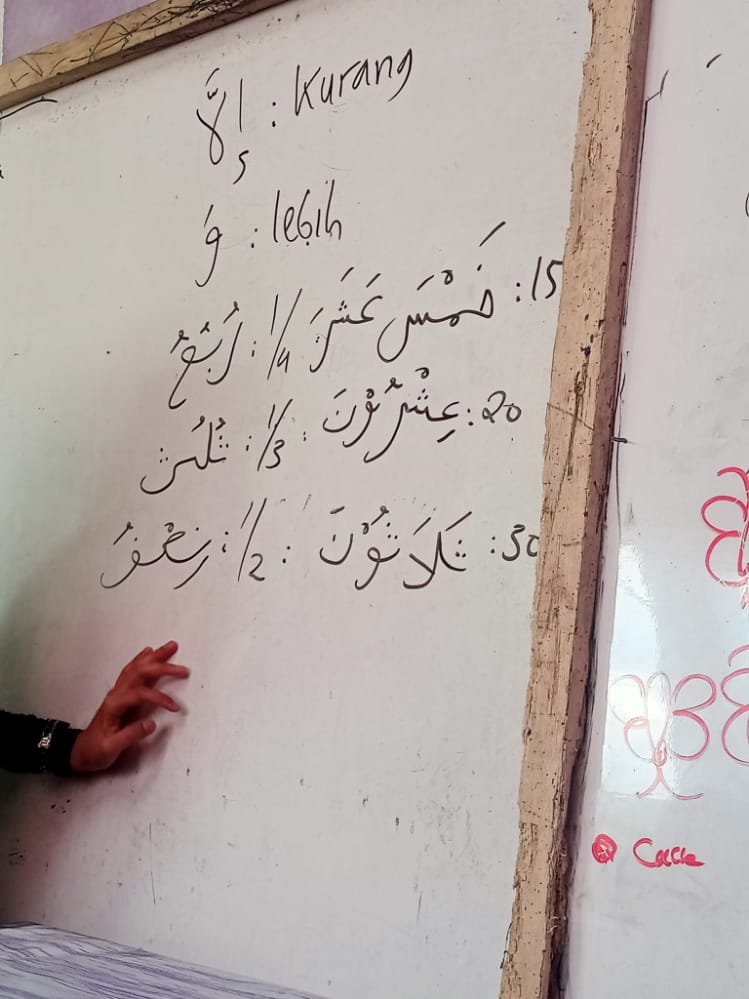 إِلَّا : Kurang
وَ : lebih
15 : خَمْسَ عَشَرَ : 1/4 : رُبْعُ
20 : عِشْرُوْنَ : 1/3 : ثُلُث
30 : ثَلَاثُوْنَ : 1/2 : نِصْفُ